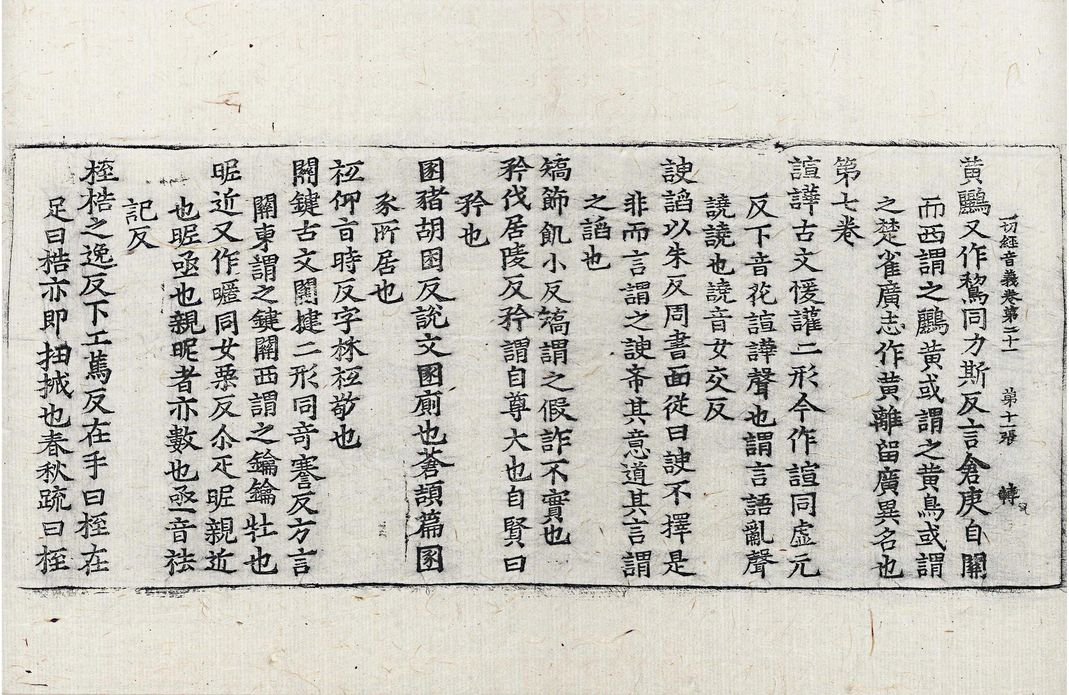 一切經音義卷第二十一 第十張 轉
黃鸝又作鵹同力斯反言倉庚自關
而西謂之鸝黃或謂之黃鳥或謂
之楚雀廣志作黃離留廣異名也
第七卷
諠譁古文愋讙二形今作諠同虛元
反下音花諠譁聲也謂言語亂聲
譊譊也譊音女交反
諛謟以朱反周書面從曰諛不擇是
非而言謂之諛希其意道其言謂
之謟也
矯飾飢小反矯謂之假詐不實也
矜伐居陵反矜謂自尊大也自賢曰
矜也
圂豬胡困反說文圂廁也蒼頡篇圂
豕所居也
祗仰旨時反字林祗敬也
關鍵古文闑揵二形同奇謇反方言
關東謂之鍵關西謂之鑰鑰牡也
昵近又作暱同女栗反尒疋昵親近
也昵亟也親昵者亦數也亟音祛
記反
桎梏之逸反下工篤反在手曰桎在
足曰梏亦即杻械也春秋疏曰桎